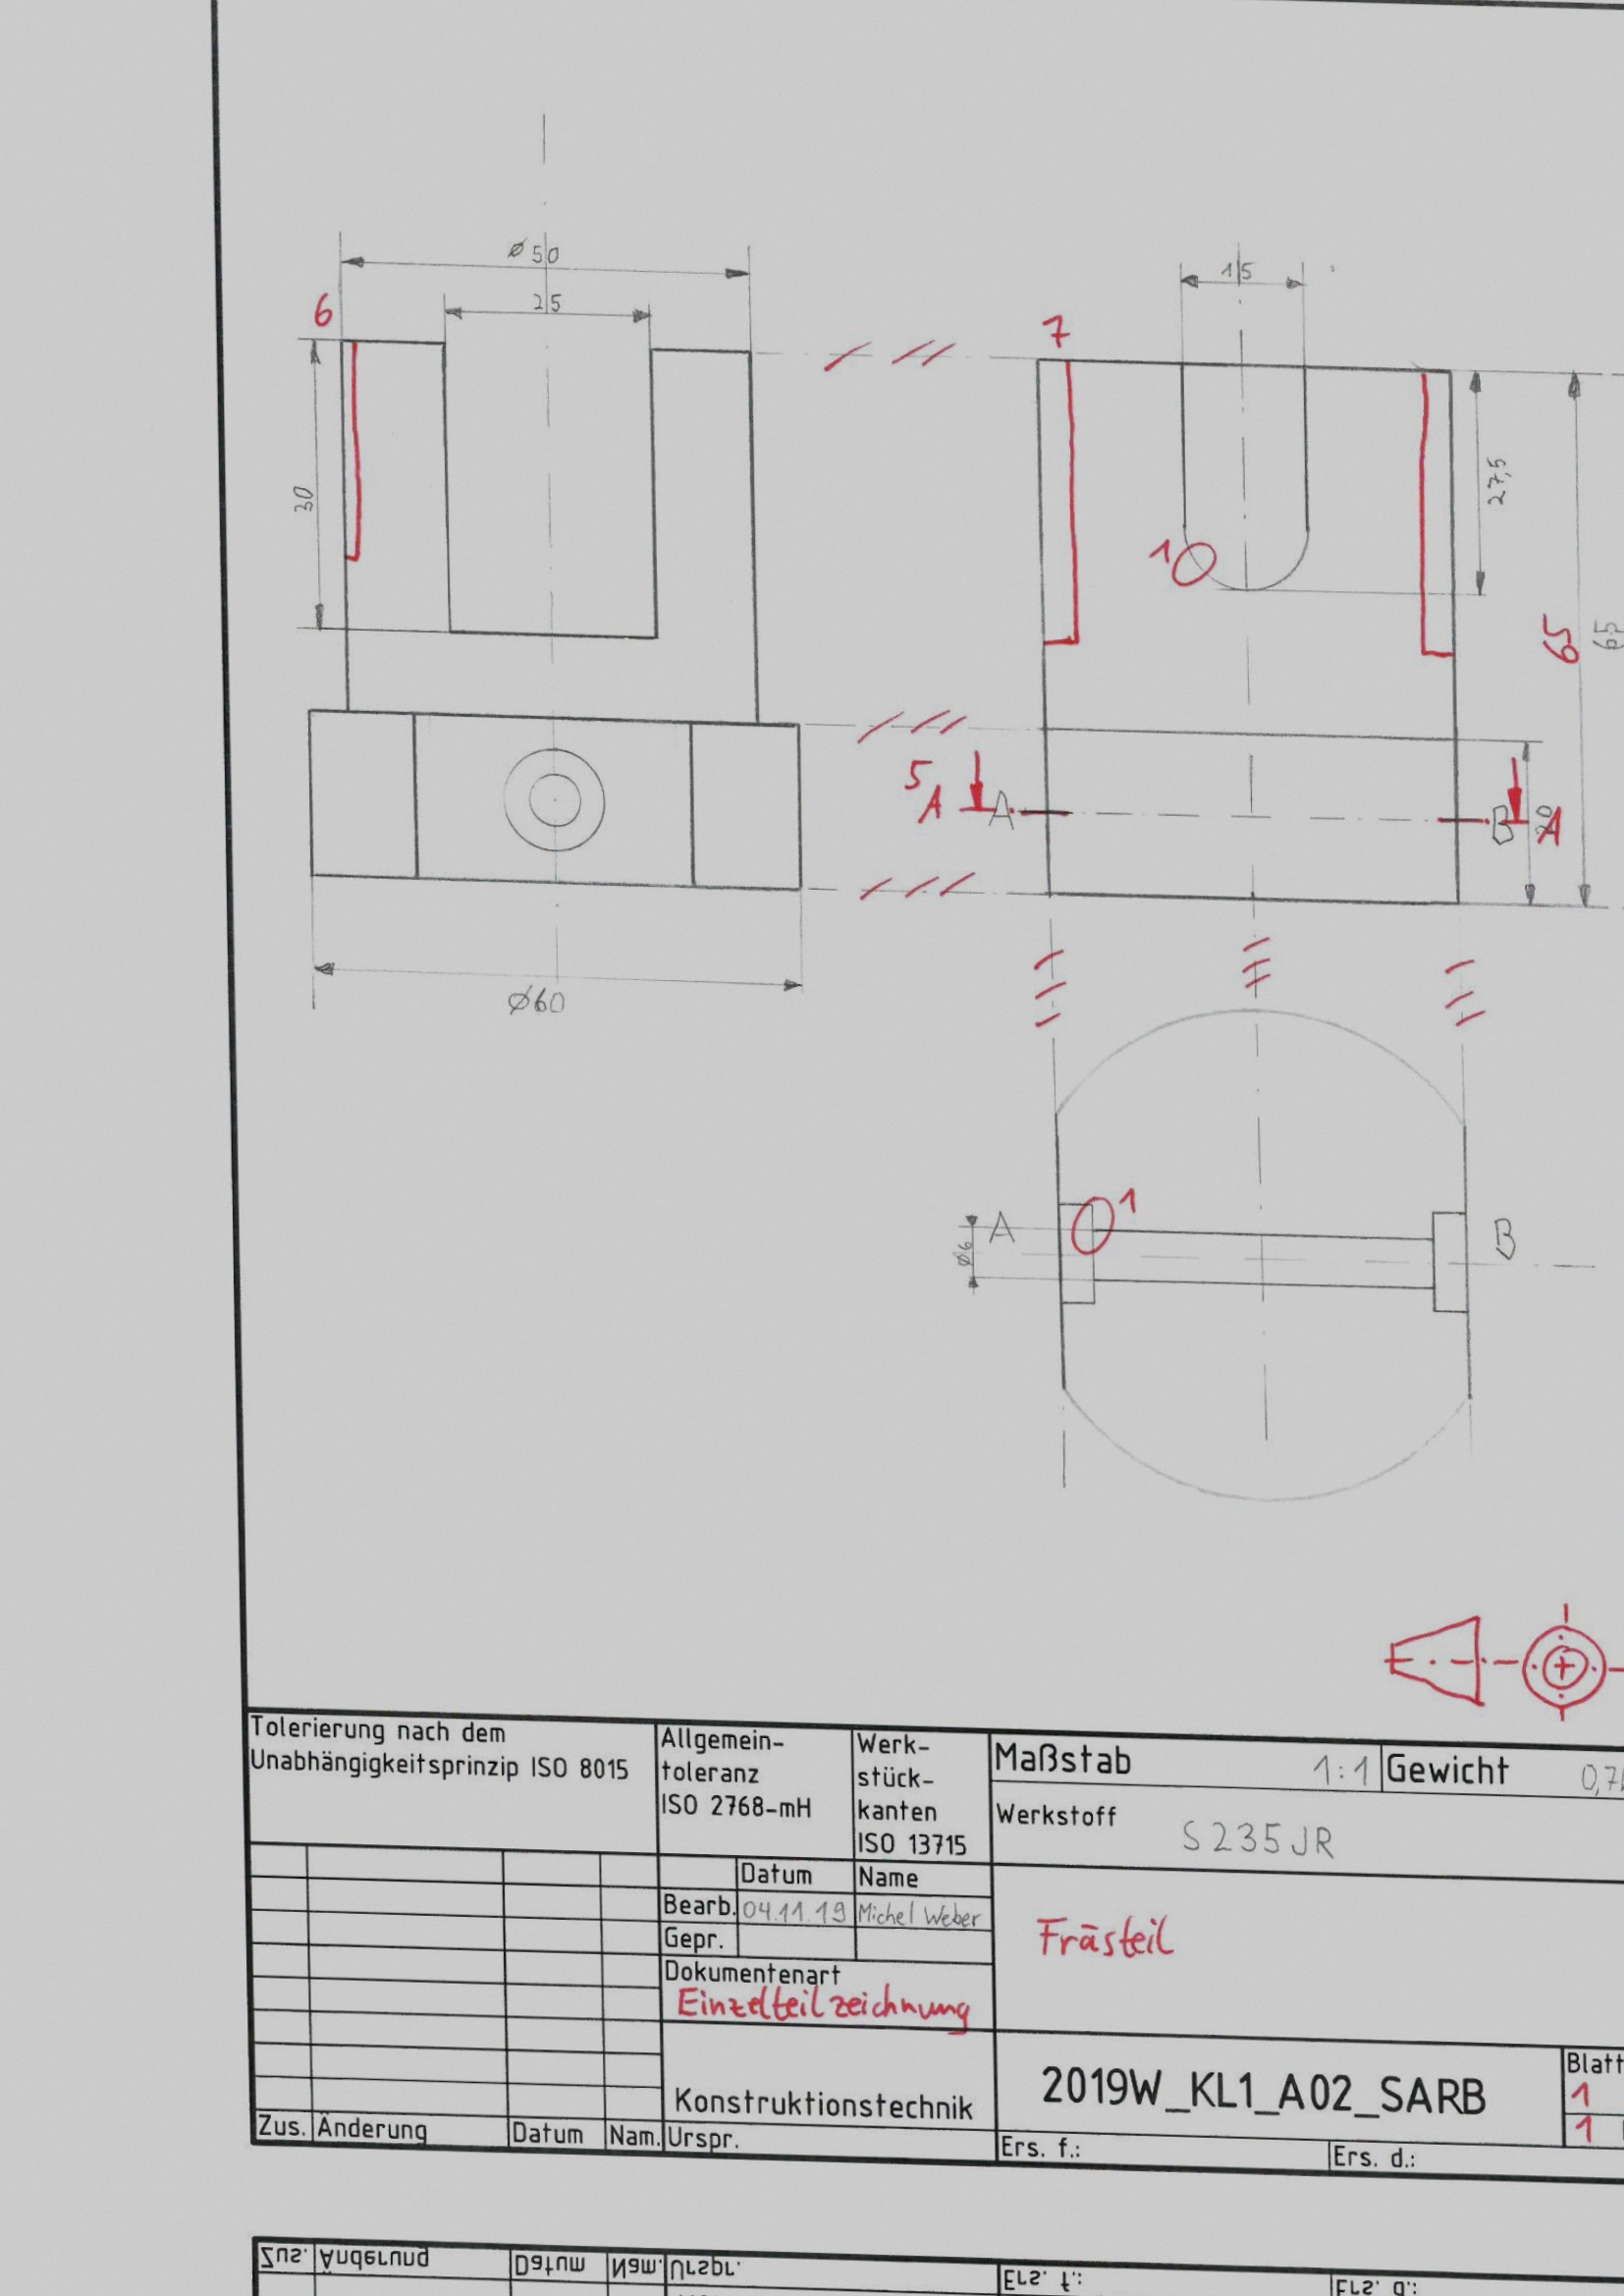 ⌀50
25
15
6
7
30
27,5
1
65
65
5
A
A
B
A
20
⌀60
1
A
B
⌀6
Tolerierung nach dem
Unabhängigkeitsprinzip ISO 8015
Allgemein-
toleranz
ISO 2768-mH
Werk-
stück-
kanten
ISO 13715
Maßstab 1:1
Gewicht
Werkstoff S235JR
Datum Name
Bearb. 04.11.19 Michel Weber
Gepr.
Frästeil
Dokumentenart
Einzelteilzeichnung
Konstruktionstechnik
2019W_KL1_A02_SARB
Blatt
1
1
Zus. Änderung Datum Nam. Urspr. Ers. f.: Ers. d.:
Zus. Änderung Datum Nam. Urspr. Ers. f.: Ers. d.: